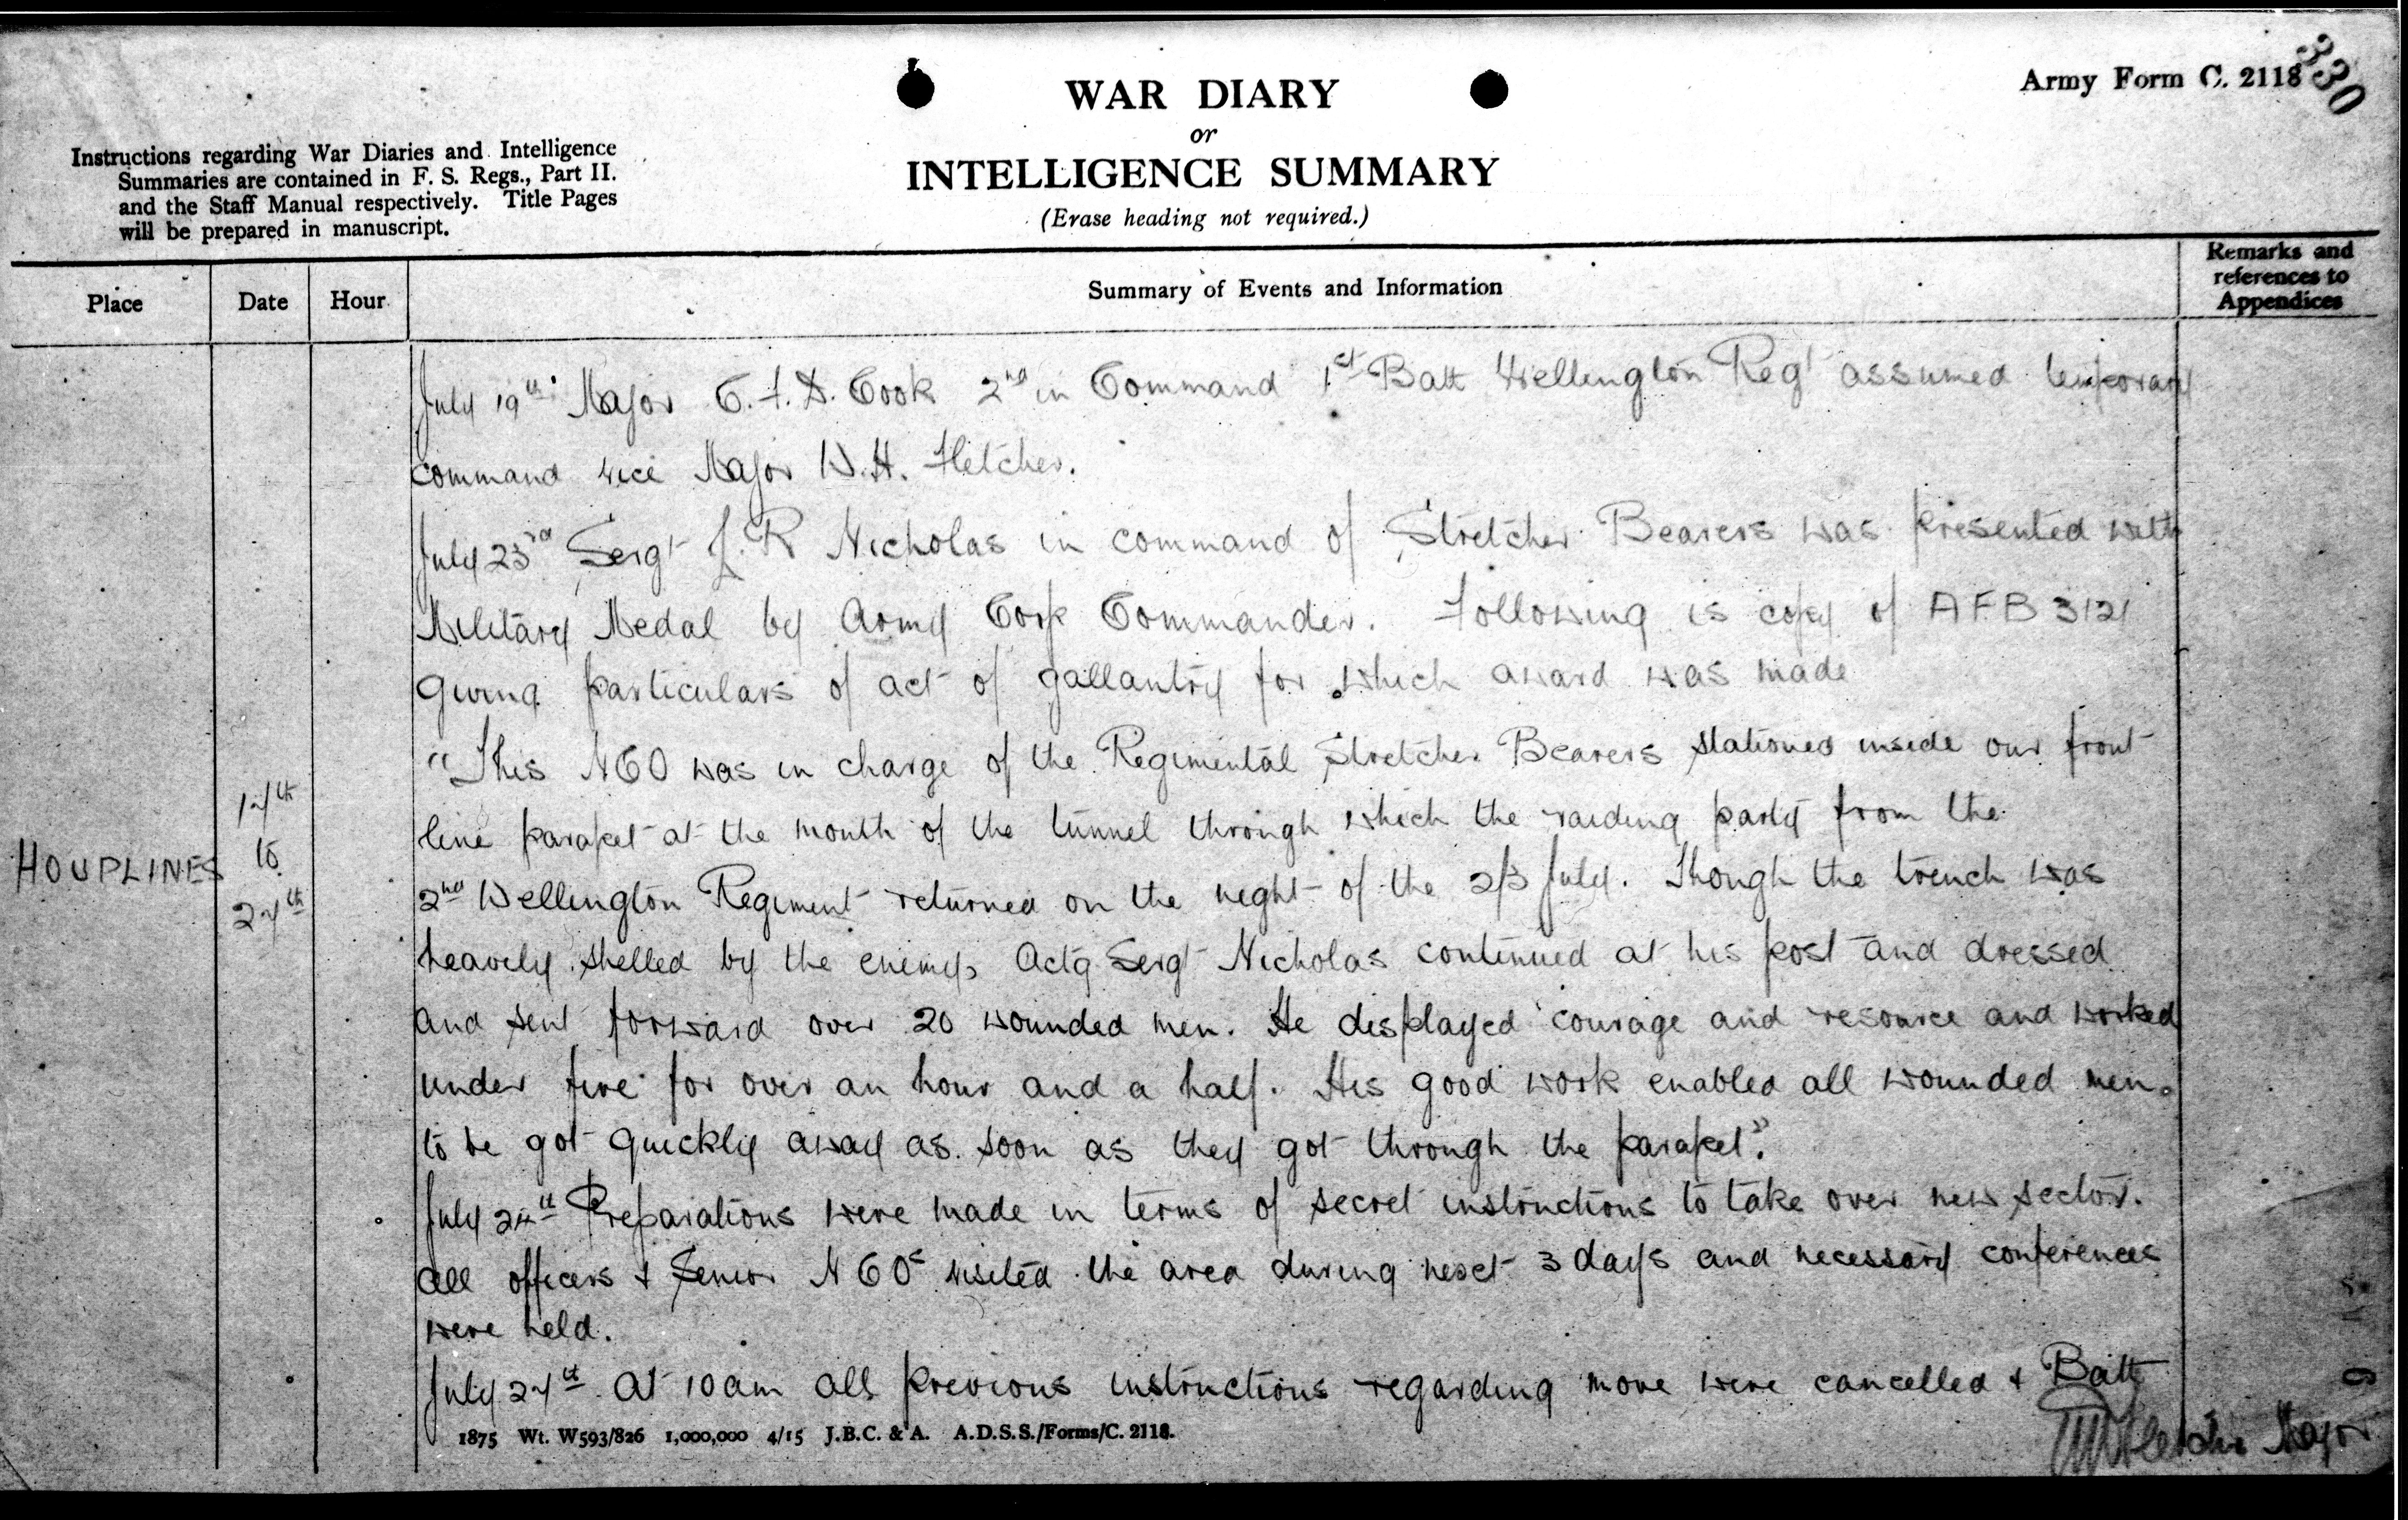 Army Form C. 2118
330
WAR DIARY
or
INTELLIGENCE SUMMARY
(Erase heading not required.)
Instructions regarding War Diaries and Intelligence
Summaries are contained in F. S. Regs., Part II.
and the Staff Manual respectively. Title Pages
will be prepared in manuscript.
Place
Date
Hour
Summary of Events and Information
Remarks and
references to
Appendices
July 19th Major C.F.D. Cook 2nd in Command 1st Batt Wellington Regt assumed temporary
command vice Major W.H. Fletcher.
July 23rd Sergt J.R Nicholas in command of Stretcher Bearers was presented with
Military Medal by Army Corp Commander. Following is copy of AFB 3121
Giving particulars of act of gallantry for which award was made
"This NCO was in charge of the Regimental Stretcher Bearers stationed inside our front
line parapet at the mouth of the tunnel through which the raiding party from the
2nd Wellington Regiment returned on the night of the 2/3 July. Though the trench was
heavily shelled by the enemy, Actg Sergt Nicholas continued at his post and dressed
and sent forward over 20 wounded men. He displayed courage and resource and worked
under fire for over an hour and a half. His good work enabled all wounded men
to be got quickly away as soon as they got through the parapet".
July 24th Preparations were made in terms of secret instructions to take over new sector.
All officers & Senior NCOs visited the area during next 3 days and necessary conferences
were held.
July 27th At 10am all previous instructions regarding move were cancelled & Batt
HOUPLINES
17th
to
27th
1875 Wt. W593/826 1,000,000 4/15 J.B.C. & A. A.D.S.S./Forms/C. 2118.
Fletcher Major